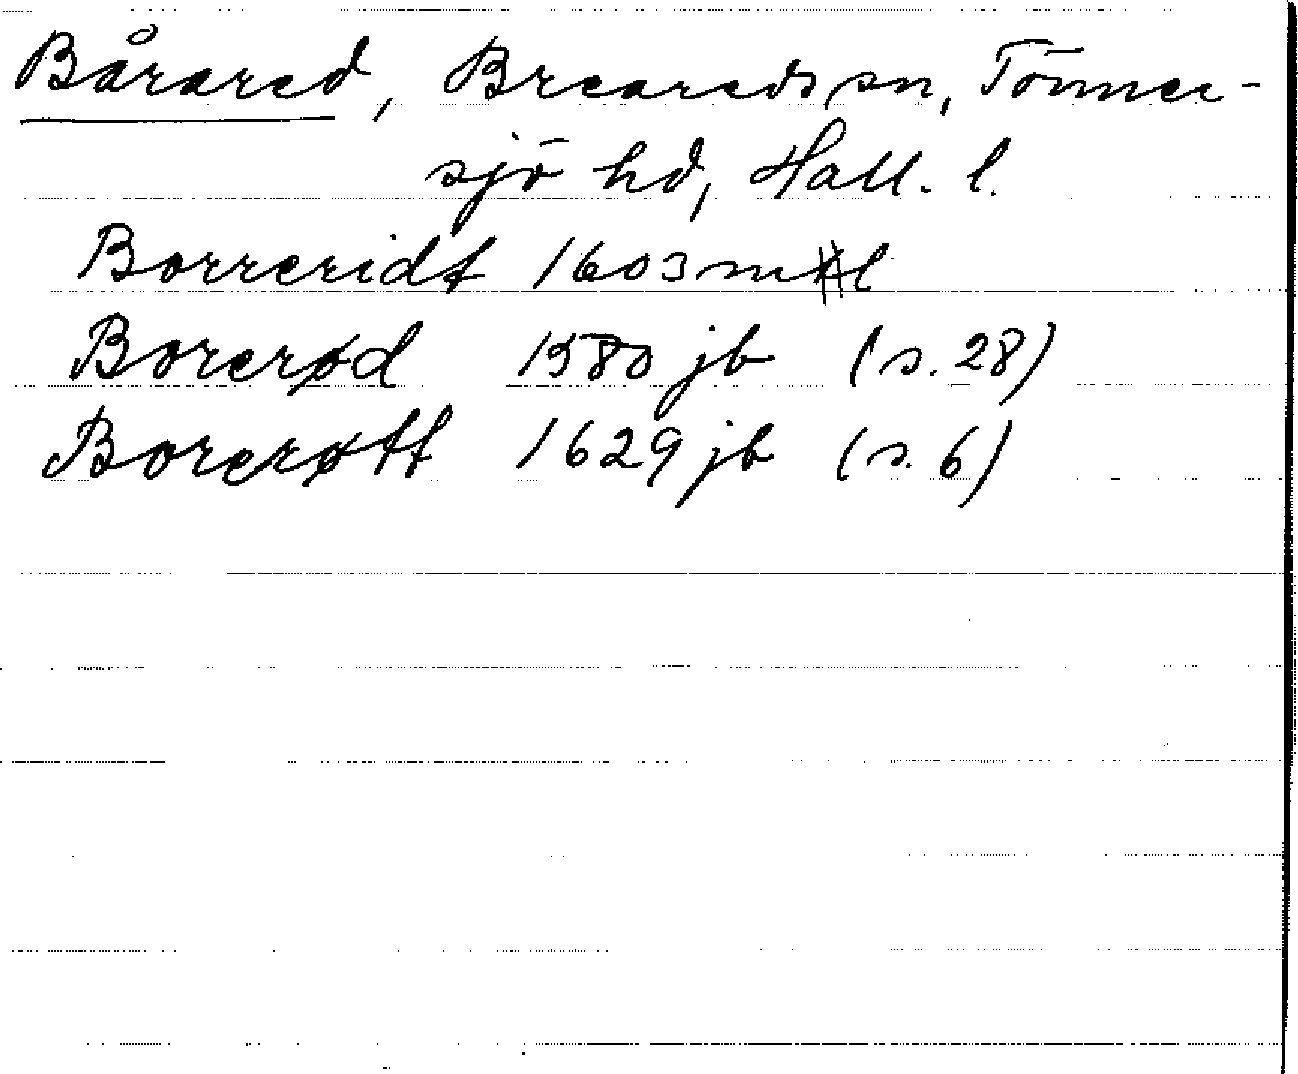 Bårared, Breareds sn, Tönner-
sjö hd, Hall. l.
Borreridt 1603 ml
Borerød 1580 jb (s. 28)
Borerøtt 1629 jb (s. 6)